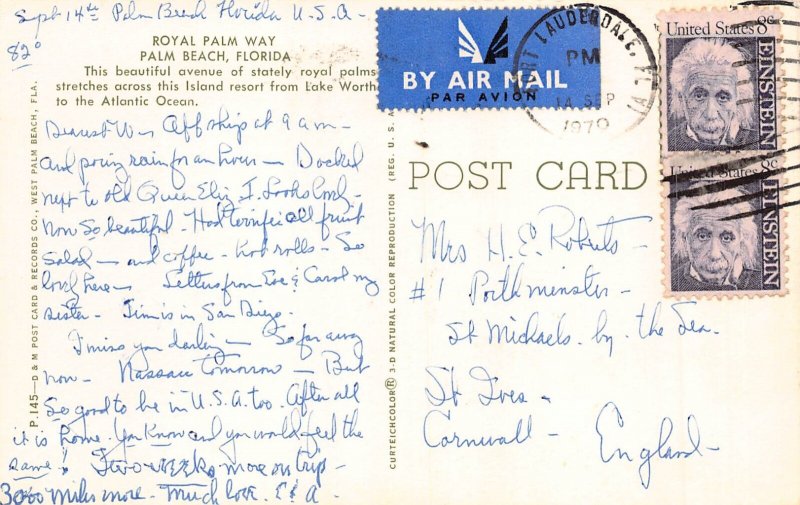 Sept 14th Palm Beach Florida U.S.A -
82°
ROYAL PALM WAY
PALM BEACH, FLORIDA
This beautiful avenue of stately royal palms
stretches across this Island resort from Lake Worth
to the Atlantic Ocean.
Dearest Off ship at 9 am -
and pouring rain for an hour - Docked
next to old Queen Eliz I. Looks lovely -
now so beautiful - Had terrific all fruit
salad - and coffee - hot rolls - So
here - Letters from Eve & Carol my
sister - Jim is in San Diego.
I miss you darling - So far away
now - Nassau tomorrow - But
so good to be in U.S.A. too. After all
it is home. You know and you would feel the
same! Two weeks more on trip -
3000 miles more - Much love. E & A -
P.145—D & M POST CARD & RECORDS CO., WEST PALM BEACH, FLA.
CURTEICHCOLOR® 3-D NATURAL COLOR REPRODUCTION (REG. U. S. A.
BY AIR MAIL
PAR AVION
FORT LAUDERDALE, FLA
PM
14 SEP
1970
United States 8c
EINSTEIN
United States 8c
EINSTEIN
POST CARD
Mrs H. E. Roberts -
#1 Porthminster -
St Michaels. by. the Sea.
St Ives -
Cornwall -
England -